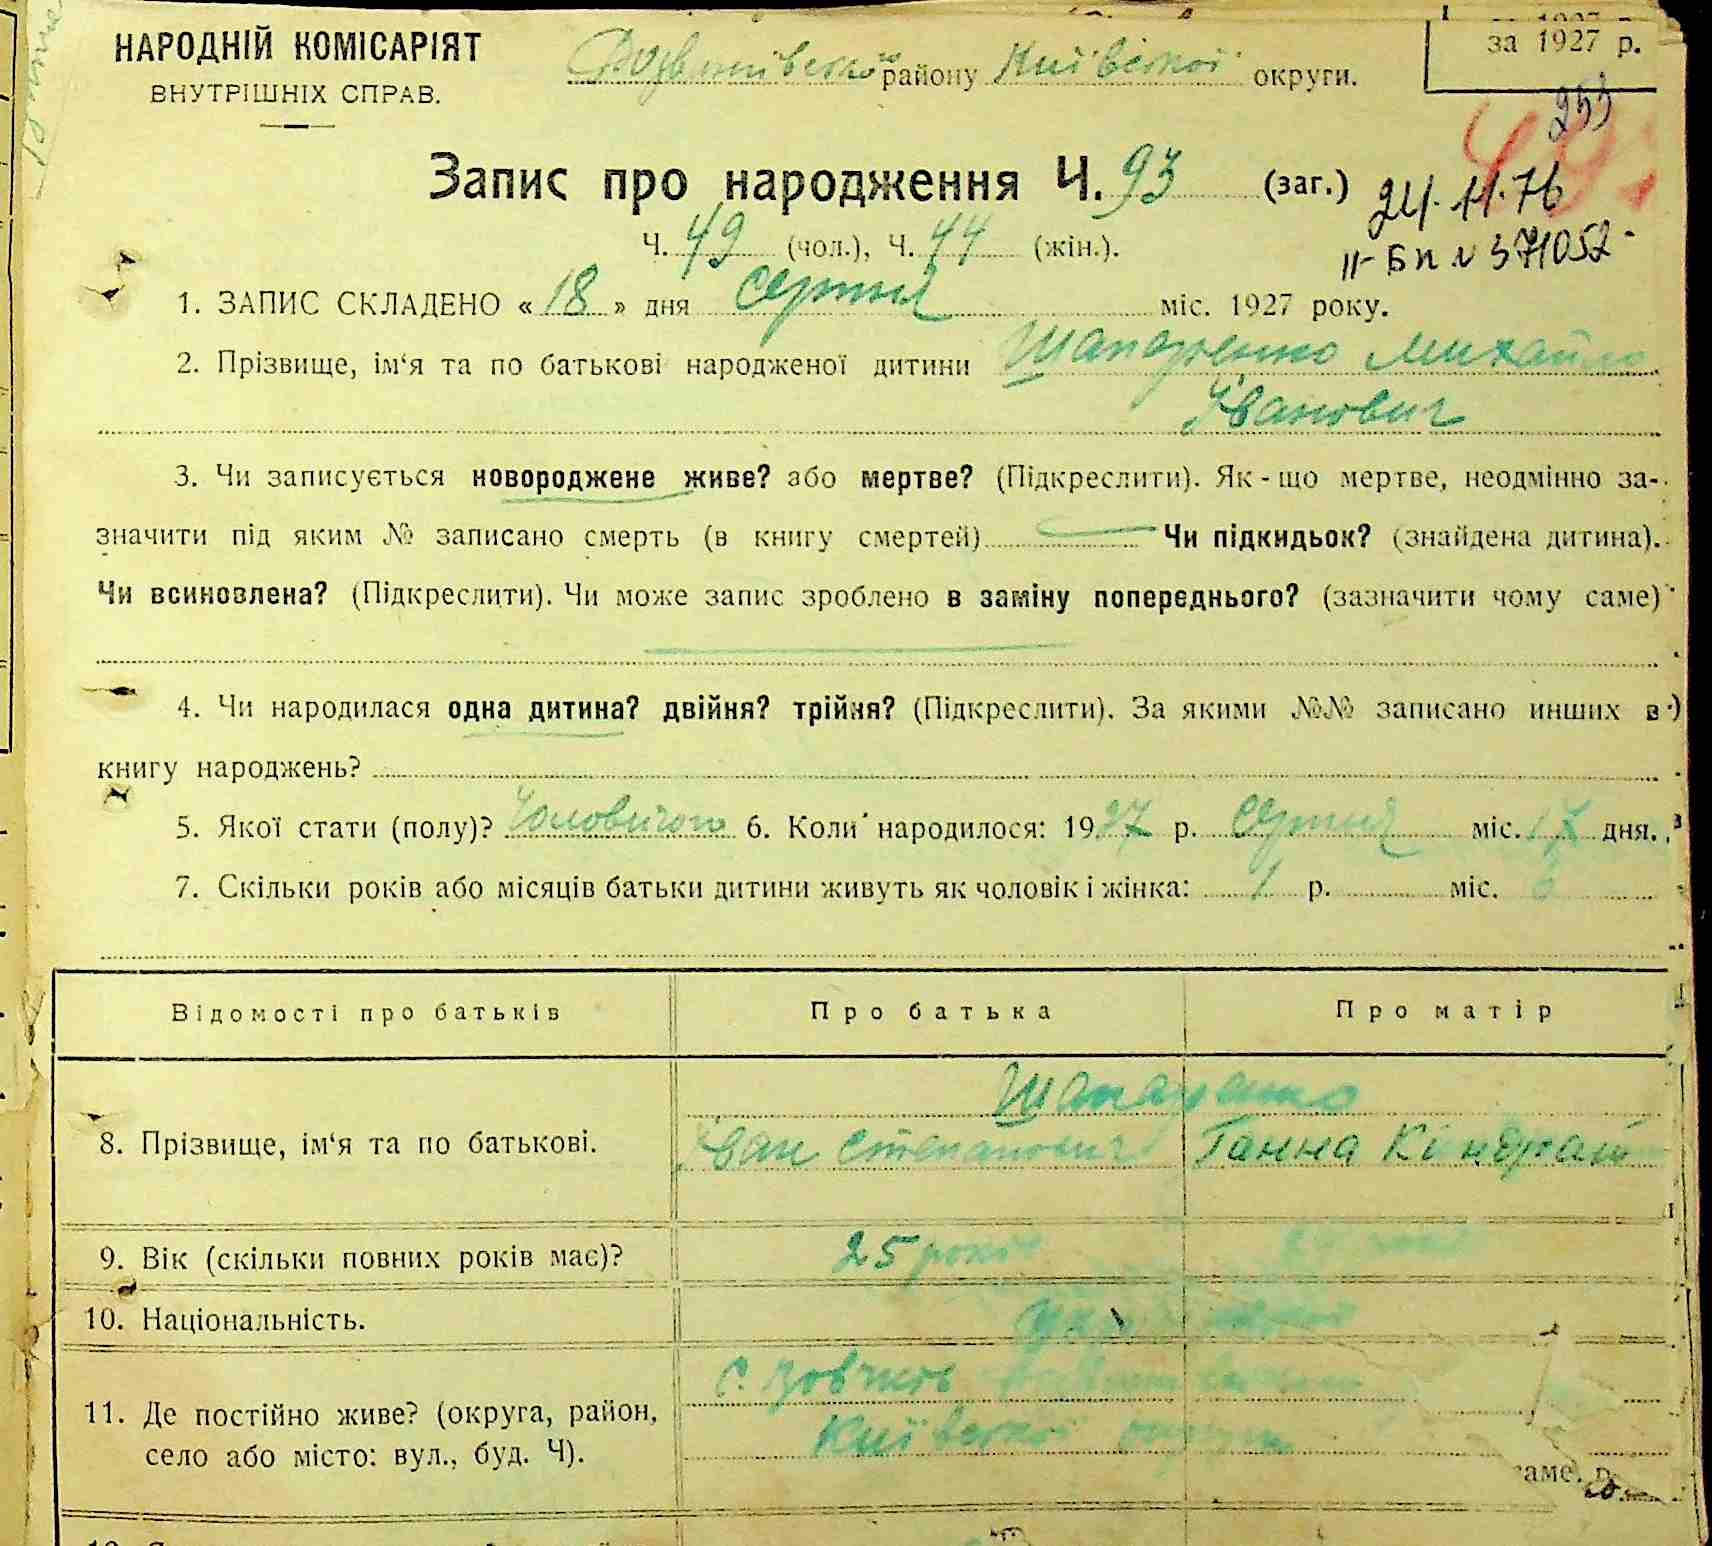 за 1927 р.
НАРОДНІЙ КОМІСАРІЯТ
ВНУТРІШНІХ СПРАВ.
району Київської округи.
253
Запис про народження Ч. 93 (заг.)
24.11.76
Ч. 49 (чол.), Ч. 44 (жін.).
II-БП № 371052
1. ЗАПИС СКЛАДЕНО « 18 » дня серпня міс. 1927 року.
2. Прізвище, ім‘я та по батькові народженої дитини Шапаренко Михайло
Іванович
3. Чи записується новороджене живе? або мертве? (Підкреслити). Як-що мертве, неодмінно за-
значити під яким № записано смерть (в книгу смертей) Чи підкидьок? (знайдена дитина).
Чи всиновлена? (Підкреслити). Чи може запис зроблено в заміну попереднього? (зазначити чому саме)
4. Чи народилася одна дитина? двійня? трійня? (Підкреслити). За якими №№ записано инших в
книгу народжень?
5. Якої стати (полу)? Чоловічого 6. Коли народилося: 1927 р. серпня міс. 17 дня.
7. Скільки років або місяців батьки дитини живуть як чоловік і жінка: 1 р. міс.
Відомості про батьків Про батька Про матір
Шапаренко
8. Прізвище, ім‘я та по батькові. Іван Степанович Ганна Кіндрат
9. Вік (скільки повних років має)? 25 років
10. Національність.
с.
11. Де постійно живе? (округа, район,
Київської округи
село або місто: вул., буд. Ч).